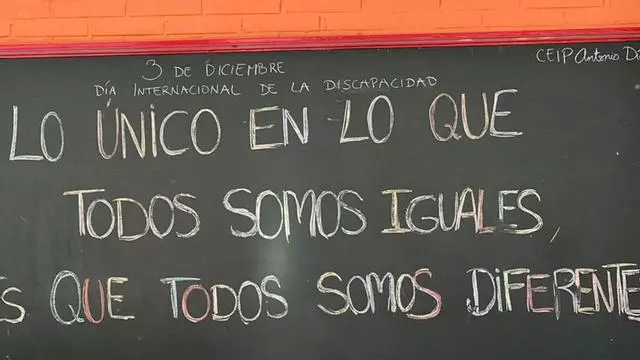 CEIP Antonio
3 DE DICIEMBRE
DÍA INTERNACIONAL DE LA DISCAPACIDAD
LO ÚNICO EN LO QUE
TODOS SOMOS IGUALES,
QUE TODOS SOMOS DIFERENTE